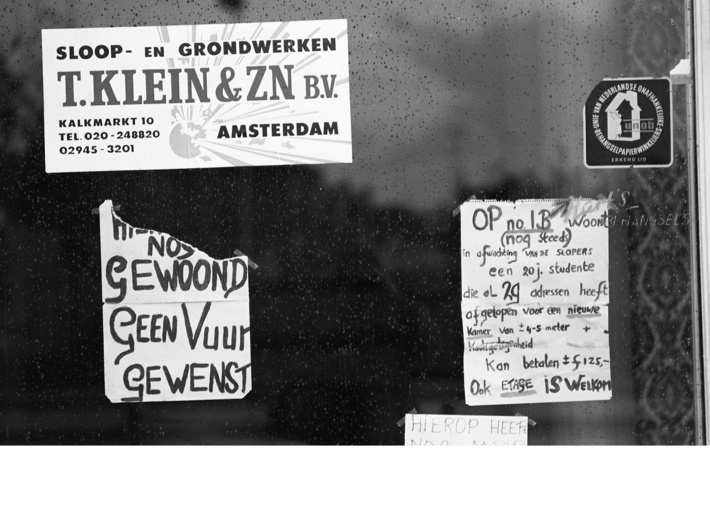 SLOOP- EN GRONDWERKEN
T.KLEIN & ZN B.V.
KALKMARKT 10
TEL. 020 - 248820
02945 - 3201
AMSTERDAM
UNIE VAN NEDERLANDSE ONAFHANKELIJKE
BEHANGSELPAPIERWINKELIERS
unob
ERKEND LID
NOG
GEWOOND
GEEN VUUR
GEWENST
OP no. 1.B WOONT
(nog steeds)
in afwachting VAN DE SLOPERS
een 20 j. studente
die al 29 adressen heeft
afgelopen voor een nieuwe
Kamer van ± 4-5 meter +
Kookgelegenheid
Kan betalen ± f 125,-
Ook ETAGE IS WELKOM
HIEROP HEEFT